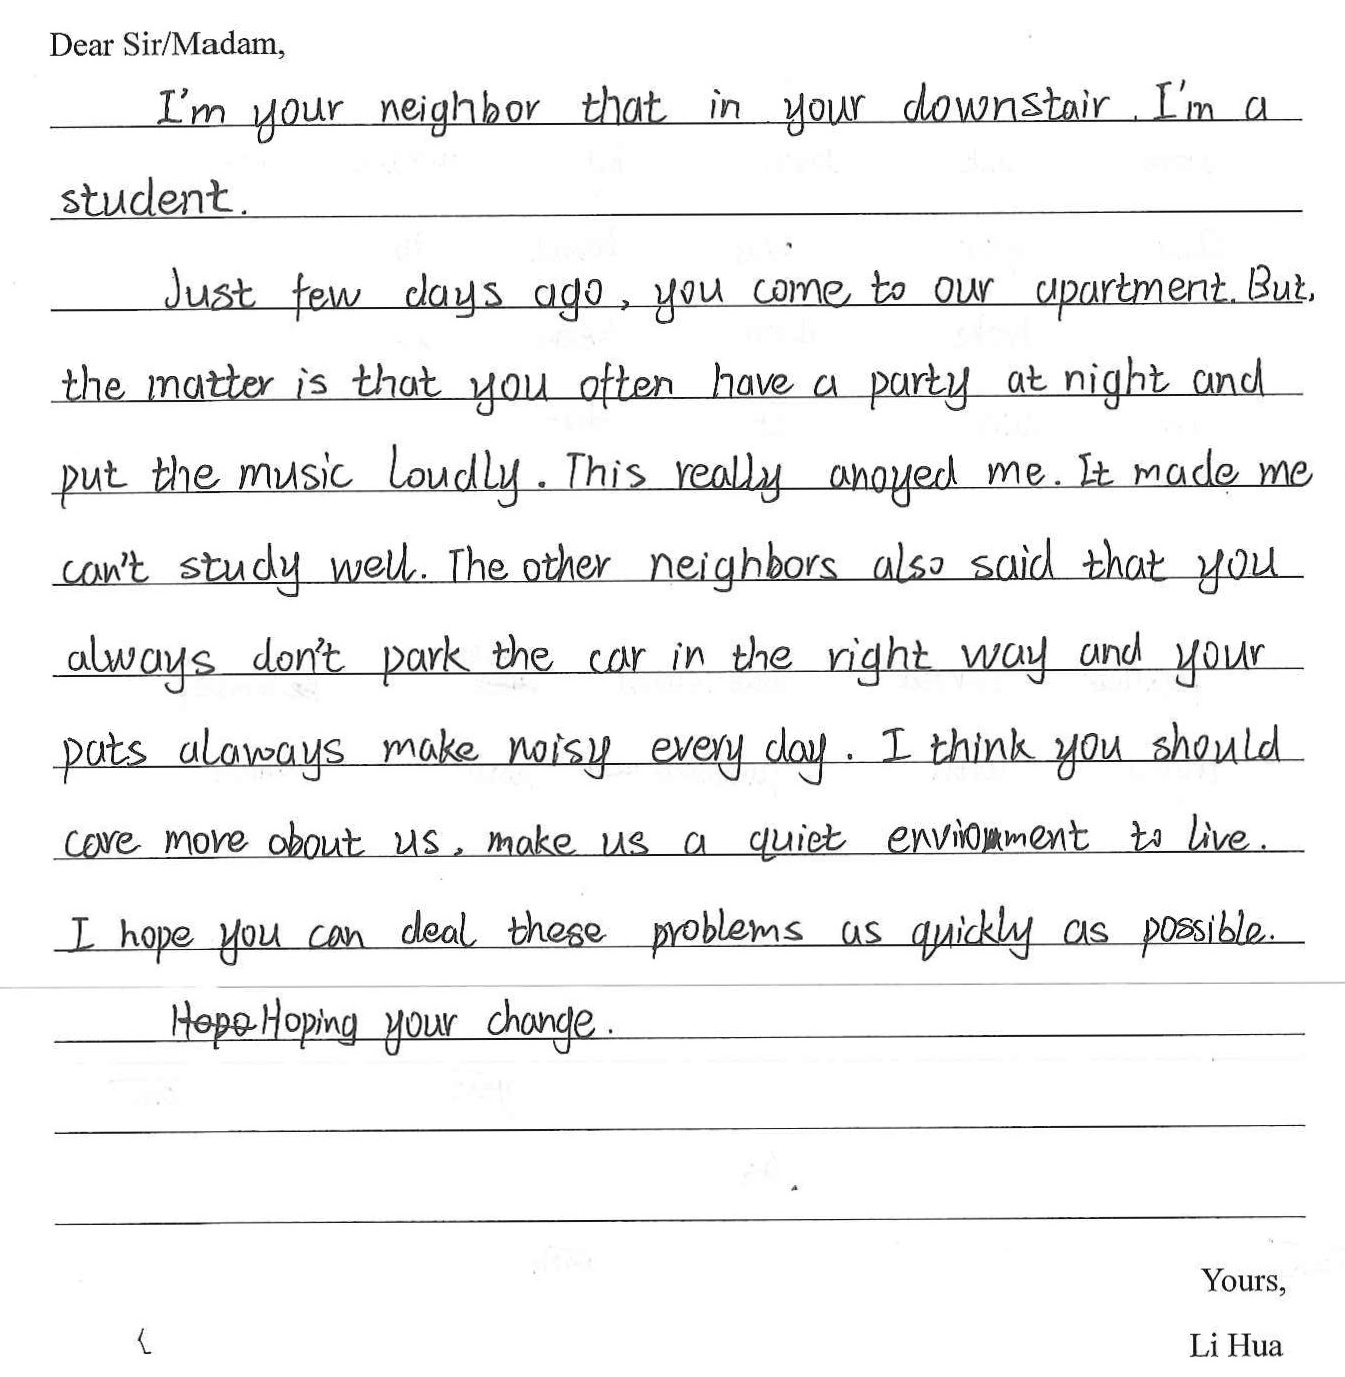 Dear Sir/Madam,
I'm your neighbor that in your downstair. I'm a
student.
Just few days ago, you come to our apartment. But,
the matter is that you often have a party at night and
put the music loudly. This really anoyed me. It made me
can't study well. The other neighbors also said that you
always don't park the car in the right way and your
pats alaways make noisy every day. I think you should
care more about us, make us a quiet enviornment to live.
I hope you can deal these problems as quickly as possible.
Hope Hoping your change.
Yours,
Li Hua